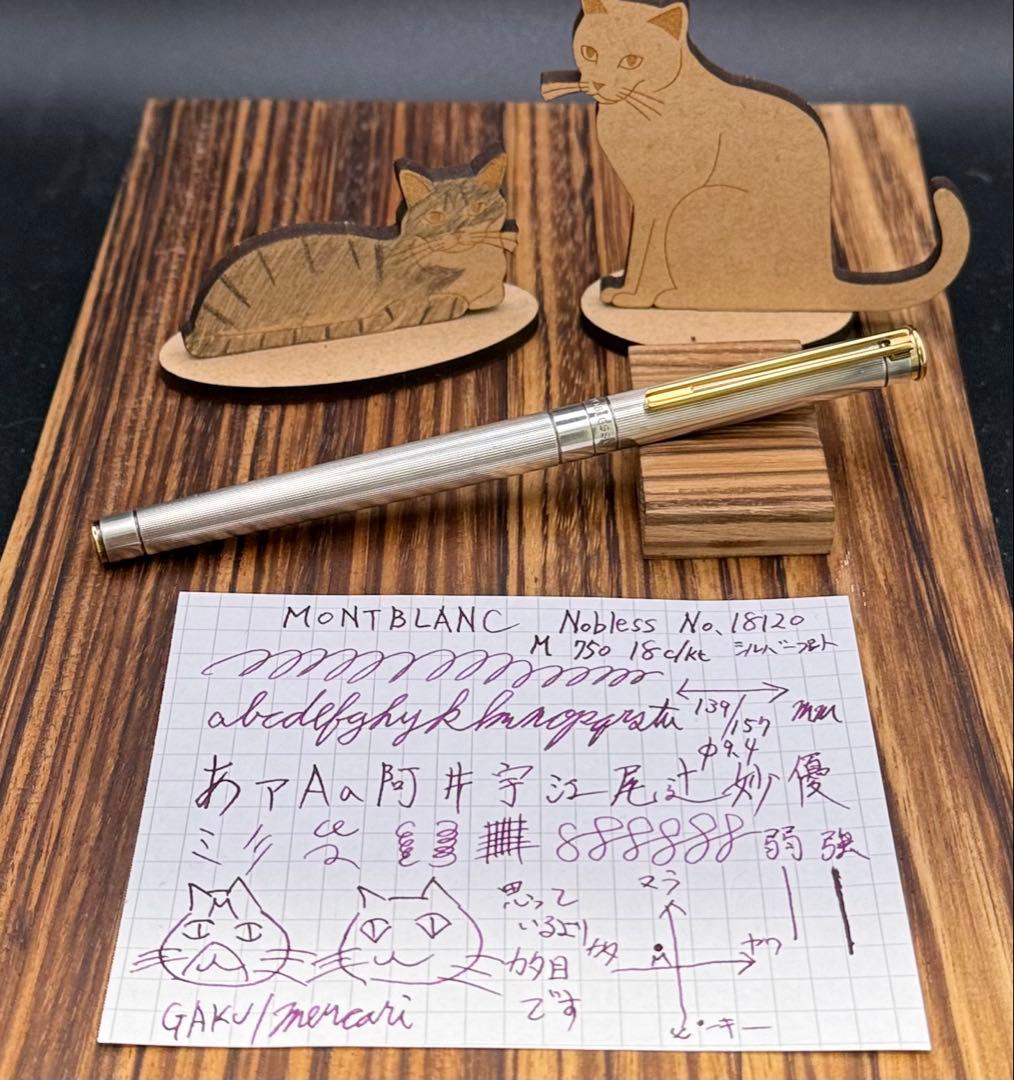 MONTBLANC Nobless No.18120
M 750 18c/kt シルバープレート
abcdefghyk lmnopqrstu 139/157 mm
φ9.4
あ ア A a 阿 井 宇 江 尾 辻 妙 優
8888888 弱 強
思って
いるより
カタ目
です
ヌラ
カタ
ヤワ
M
ピーキー
GAKU/mercari